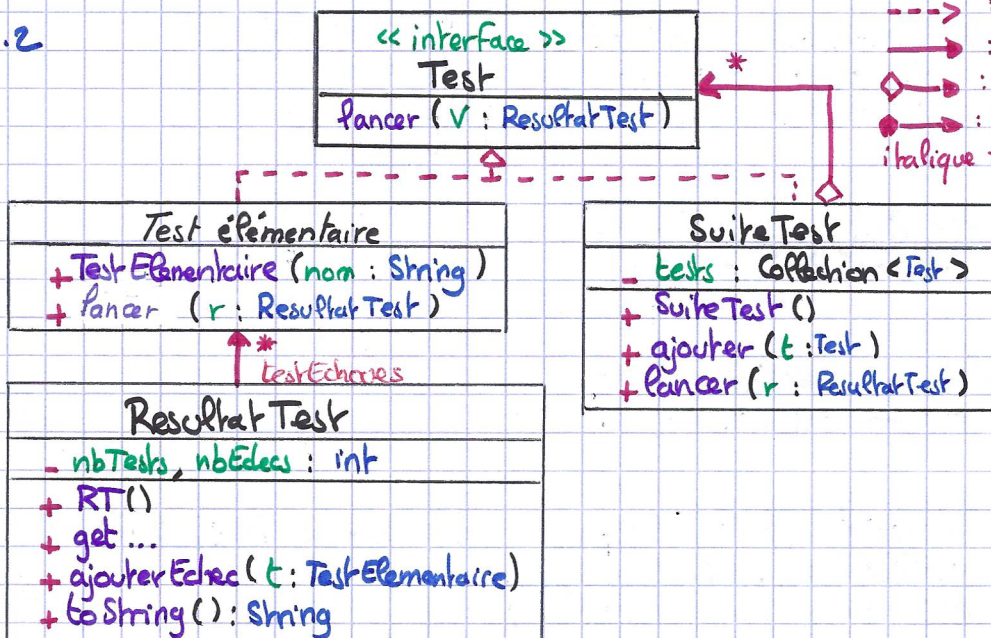 .2
<< interface >>
Test
lancer (V : ResultatTest)
*
:
:
:
italique
Test élémentaire
+ TestElementaire (nom : String)
+ lancer (r : ResultatTest)
*
testEchoues
SuiteTest
- tests : Collection <Test>
+ SuiteTest ()
+ ajouter (t : Test)
+ lancer (r : ResultatTest)
ResultatTest
- nbTests, nbEchecs : int
+ RT()
+ get ...
+ ajouterEchec (t : TestElementaire)
+ toString () : String